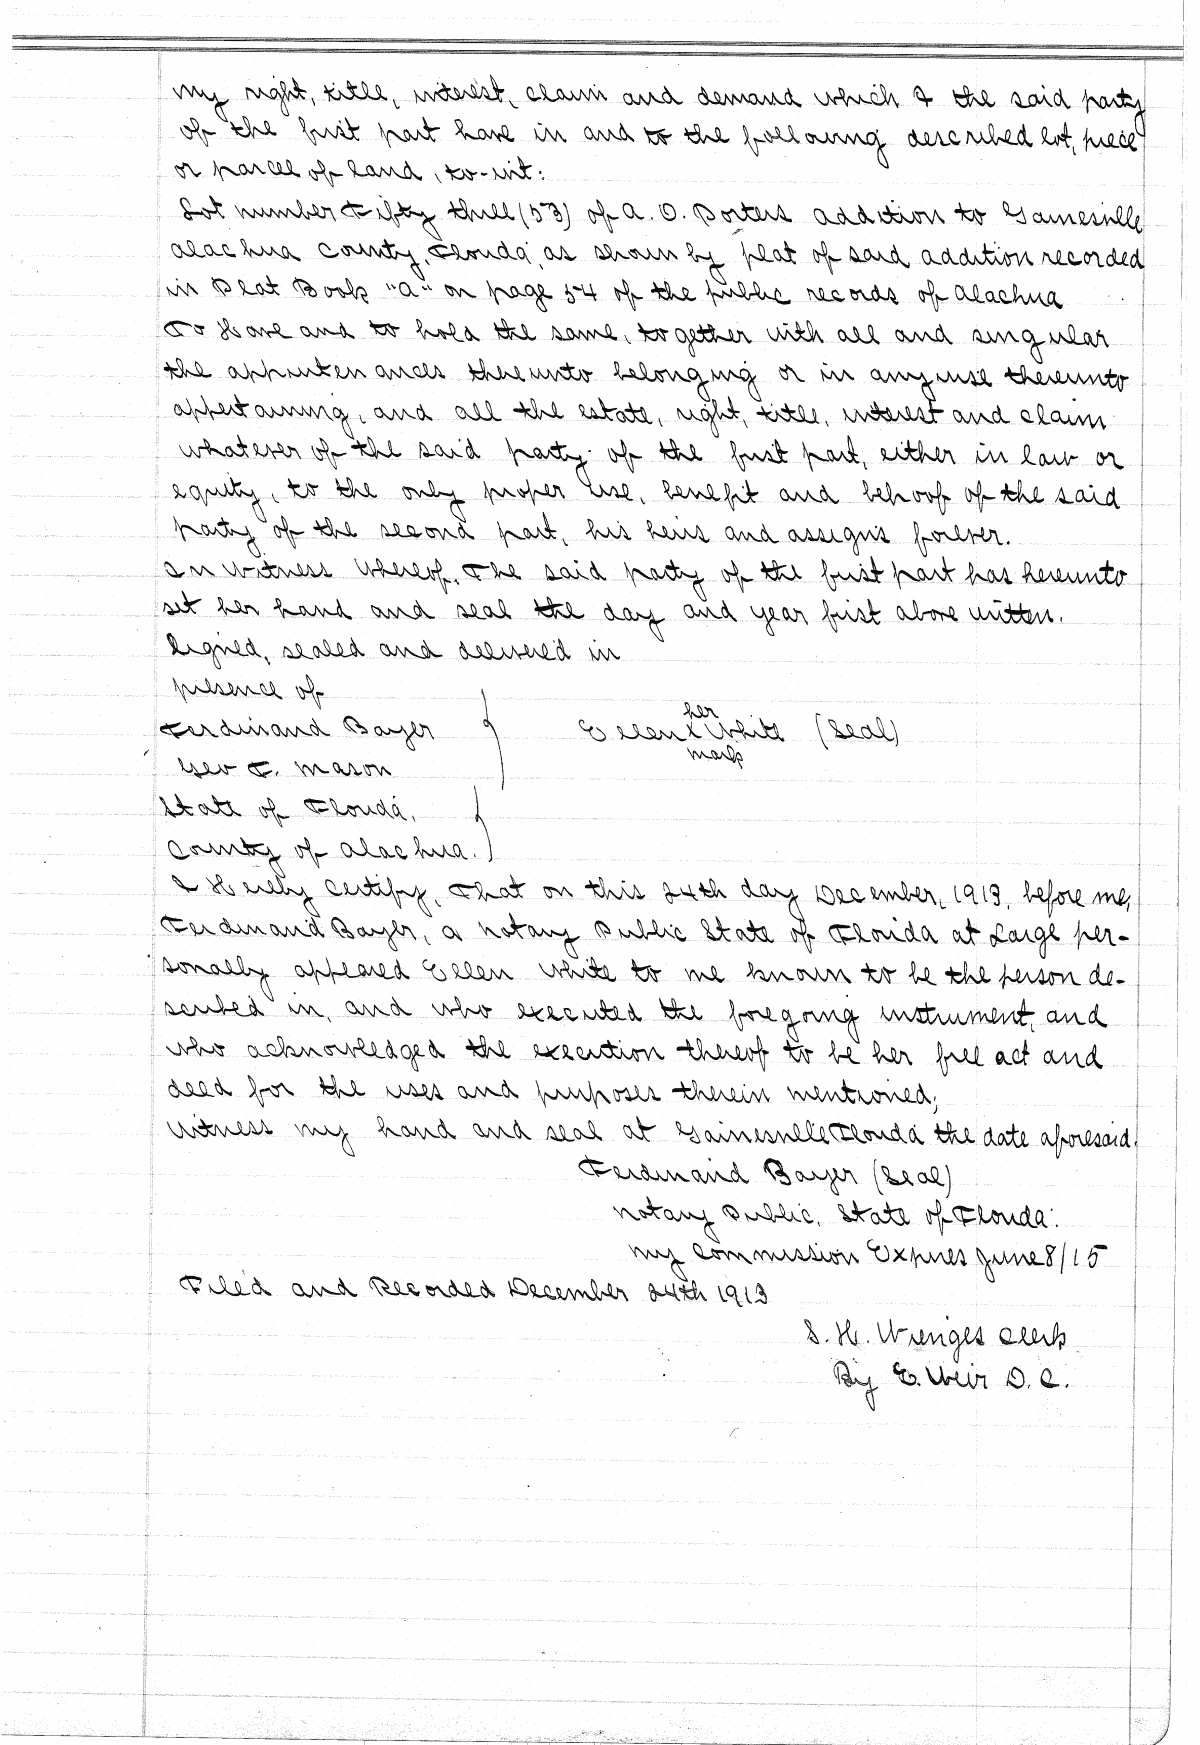 my right, title, interest, claim and demand which I the said party
of the first part have in and to the following described lot, piece
or parcel of land, to-wit:
Lot number Fifty three (53) of A. O. Porters addition to Gainesville
Alachua County, Florida, as shown by plat of said addition recorded
in Plat Book "A" on page 54 of the public records of Alachua
To Have and to hold the same, together with all and singular
the appurtenances thereunto belonging or in anywise thereunto
appertaining, and all the estate, right, title, interest and claim
whatever of the said party of the first part, either in law or
equity, to the only proper use, benefit and behoof of the said
party of the second part, his heirs and assigns forever.
In Witness Whereof, The said party of the first part has hereunto
set her hand and seal the day and year first above written.
Signed, sealed and delivered in
presence of
her
Ferdinand Bayer } Ellen x White (Seal)
mark
Geo F. Mason
State of Florida,
County of Alachua. }
I Hereby Certify, That on this 24th day December, 1913, before me,
Ferdinand Bayer, a Notary Public State of Florida at Large per-
sonally appeared Ellen White to me known to be the person de-
scribed in, and who executed the foregoing instrument, and
who acknowledged the execution thereof to be her free act and
deed for the uses and purposes therein mentioned;
Witness my hand and seal at Gainesville Florida the date aforesaid.
Ferdinand Bayer (Seal)
Notary Public, State of Florida.
My Commission Expires June 8/15
Filed and Recorded December 24th 1913
S. H. Wienges Clerk
By E. Weir D. C.